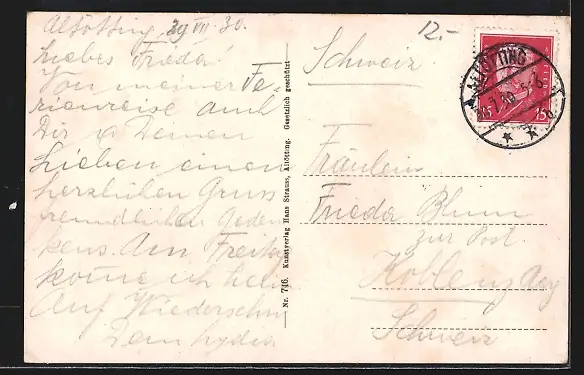 Altötting 29 VII. 30.
Liebes Frieda!
Von meiner Fe
rienreise auch
Dir u Deinen
Lieben einen
herzlichen Gruss
freundlichen Geden
kens. Am Freitag
komme ich heim
Auf Wiedersehn
Dein Lydia
Nr. 746. Kunstverlag Hans Strauss, Altötting. Gesetzlich geschützt
12.-
Schweiz
ALTÖTTING
15
Fräulein
Frieda Blum
zur Post.
Schweiz